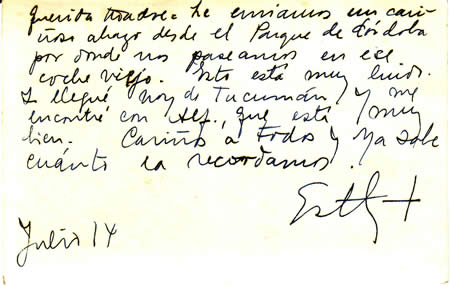 Querida Madre: Le enviamos un cari-
ñoso abrazo desde el Parque de Córdoba
por donde nos paseamos en ese
coche viejo. Esto está muy lindo.
Llegué hoy de Tucumán y me
encontré con Alf., que está muy
bien. Cariños a todos y ya sabe
cuánto la recordamos.
Julio 14